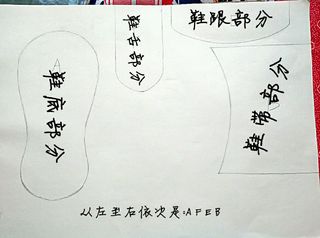 鞋底部分
鞋舌部分
鞋眼部分
鞋带部分
从左至右依次是:AFEB